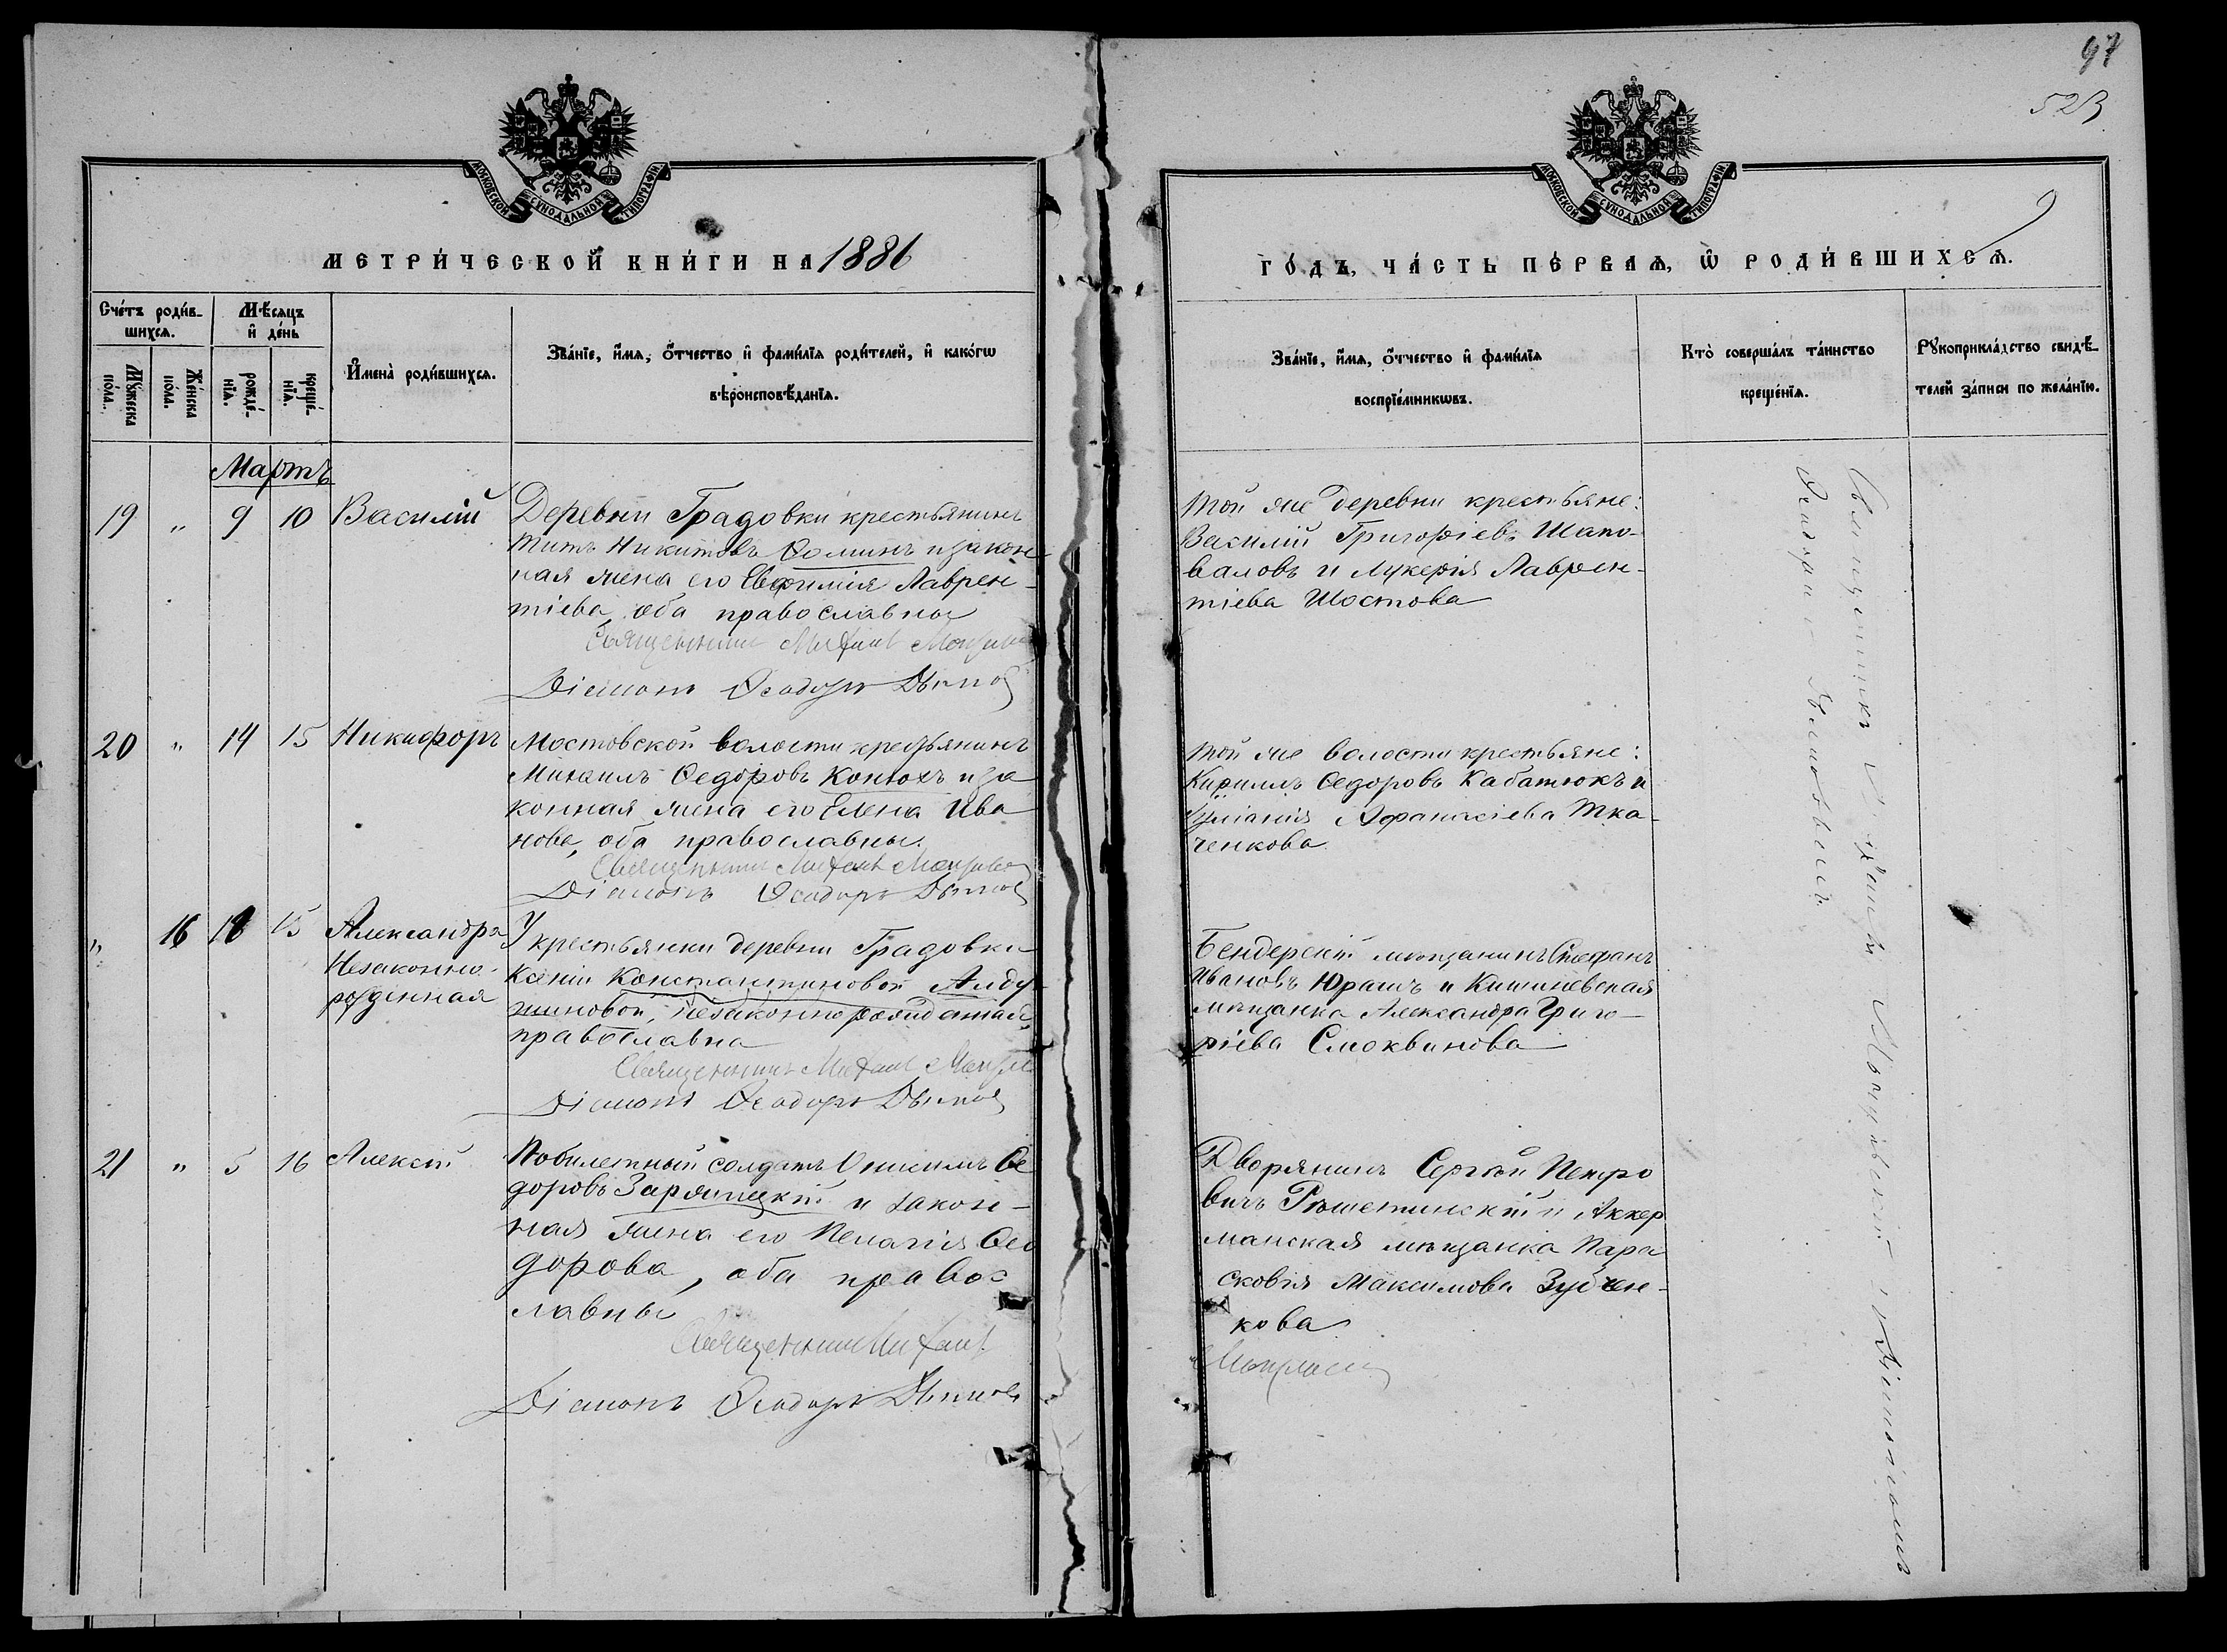 97
523
МОСКОВСКОЙ СУНОДАЛЬНОЙ ТИПОГРАФІИ
МОСКОВСКОЙ СУНОДАЛЬНОЙ ТИПОГРАФІИ
МЕТРИ́ЧЕСКОЙ КНИ́ГИ НА 1886
ГО́ДЪ, ЧА́СТЬ ПЕ́РВАѦ, Ѿ РОДИ́ВШИХСѦ.
Сче́тъ роди́в-
шихсѧ.
Мꙋ́жеска
по́ла.
Же́нска
по́ла.
Мѣ́сѧцъ
и҆ де́нь
рожде́-
нїѧ.
креще́-
нїѧ.
И҆мена̀ роди́вшихсѧ.
Зва́нїе, и҆́мѧ, ѻ҆́тчество и҆ фами́лїѧ роди́телей, и҆ како́гѡ
вѣроисповѣ́данїѧ.
Зва́нїе, и҆́мѧ, ѻ҆́тчество и҆ фами́лїѧ
воспрїе́мникѡвъ.
Кто̀ соверша́лъ та́инство
креще́нїѧ.
Рꙋкоприкла́дство свидѣ́-
телей за́писи по жела́нїю.
Мартъ
19 " 9 10 Василій
Деревни Градовки крестьянинъ
Титъ Никитовъ Ѳоминъ и закон
ная жена его Евфимія Лаврен-
тіева, оба православные
Священникъ Михаилъ
Діаконъ Ѳеодоръ
Той же деревни крестьяне:
Василій Григоріевъ Шапо-
валовъ и Лукерія Лаврен-
тіева Шостова
20 " 14 15 Никифоръ
Мостовской волости крестьянинъ
Михаилъ Ѳедоровъ Конюхъ и за
конная жена его Елена Ива
нова, оба православны.
Священникъ Михаилъ
Діаконъ Ѳеодоръ
Той же волости крестьяне:
Кирилъ Ѳедоровъ Кабатюкъ и
Іуліанія Афанасіева Тка-
ченкова
" 16 15 Александра
Незаконно-
рожденная
У крестьянки деревни Градовки
Ксеніи Константиновой
незаконнорожденная,
православна
Священникъ Михаилъ
Діаконъ Ѳеодоръ
Бендерскій мѣщанинъ Стефанъ
Ивановъ Юрашъ и Кишиневская
мѣщанка Александра Григо-
ріева Смоквинова
21 " 5 16 Алексѣй
Побилетный солдатъ Онисимъ Ѳе
доровъ и закон-
ная жена его Пелагія Ѳео
дорова, оба правос
лавны
Священникъ Михаилъ
Діаконъ Ѳеодоръ
Дворянинъ Сергѣй Петро
вичъ Рѣшетинскій и Аккер
манская мѣщанка Пара
сковія Максимова Зубчен-
кова
Священникъ Михаилъ